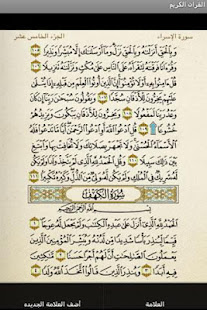 القرآن الكريم
سورة الإسراء الجزء الخامس عشر
وَبِالْحَقِّ أَنزَلْنَاهُ وَبِالْحَقِّ نَزَلَ وَمَا أَرْسَلْنَاكَ إِلَّا مُبَشِّرًا وَنَذِيرًا
١٠٥ وَقُرْآنًا فَرَقْنَاهُ لِتَقْرَأَهُ عَلَى النَّاسِ عَلَىٰ مُكْثٍ وَنَزَّلْنَاهُ تَنزِيلًا
١٠٦ قُلْ آمِنُوا بِهِ أَوْ لَا تُؤْمِنُوا إِنَّ الَّذِينَ أُوتُوا الْعِلْمَ مِن قَبْلِهِ إِذَا يُتْلَىٰ
عَلَيْهِمْ يَخِرُّونَ لِلْأَذْقَانِ سُجَّدًا ١٠٧ وَيَقُولُونَ سُبْحَانَ رَبِّنَا إِن كَانَ وَعْدُ رَبِّنَا
لَمَفْعُولًا ١٠٨ وَيَخِرُّونَ لِلْأَذْقَانِ يَبْكُونَ وَيَزِيدُهُمْ خُشُوعًا ١٠٩
قُلِ ادْعُوا اللَّهَ أَوِ ادْعُوا الرَّحْمَٰنَ أَيًّا مَّا تَدْعُوا فَلَهُ الْأَسْمَاءُ الْحُسْنَىٰ
وَلَا تَجْهَرْ بِصَلَاتِكَ وَلَا تُخَافِتْ بِهَا وَابْتَغِ بَيْنَ ذَٰلِكَ سَبِيلًا ١١٠
وَقُلِ الْحَمْدُ لِلَّهِ الَّذِي لَمْ يَتَّخِذْ وَلَدًا وَلَمْ يَكُن لَّهُ شَرِيكٌ فِي
الْمُلْكِ وَلَمْ يَكُن لَّهُ وَلِيٌّ مِّنَ الذُّلِّ وَكَبِّرْهُ تَكْبِيرًا ١١١
سُورَةُ الْكَهْفِ
بِسْمِ اللَّهِ الرَّحْمَٰنِ الرَّحِيمِ
الْحَمْدُ لِلَّهِ الَّذِي أَنزَلَ عَلَىٰ عَبْدِهِ الْكِتَابَ وَلَمْ يَجْعَل لَّهُ عِوَجًا ١
قَيِّمًا لِّيُنذِرَ بَأْسًا شَدِيدًا مِّن لَّدُنْهُ وَيُبَشِّرَ الْمُؤْمِنِينَ الَّذِينَ
يَعْمَلُونَ الصَّالِحَاتِ أَنَّ لَهُمْ أَجْرًا حَسَنًا ٢ مَّاكِثِينَ
فِيهِ أَبَدًا ٣ وَيُنذِرَ الَّذِينَ قَالُوا اتَّخَذَ اللَّهُ وَلَدًا ٤
العلامة
أضف العلامة الجديده